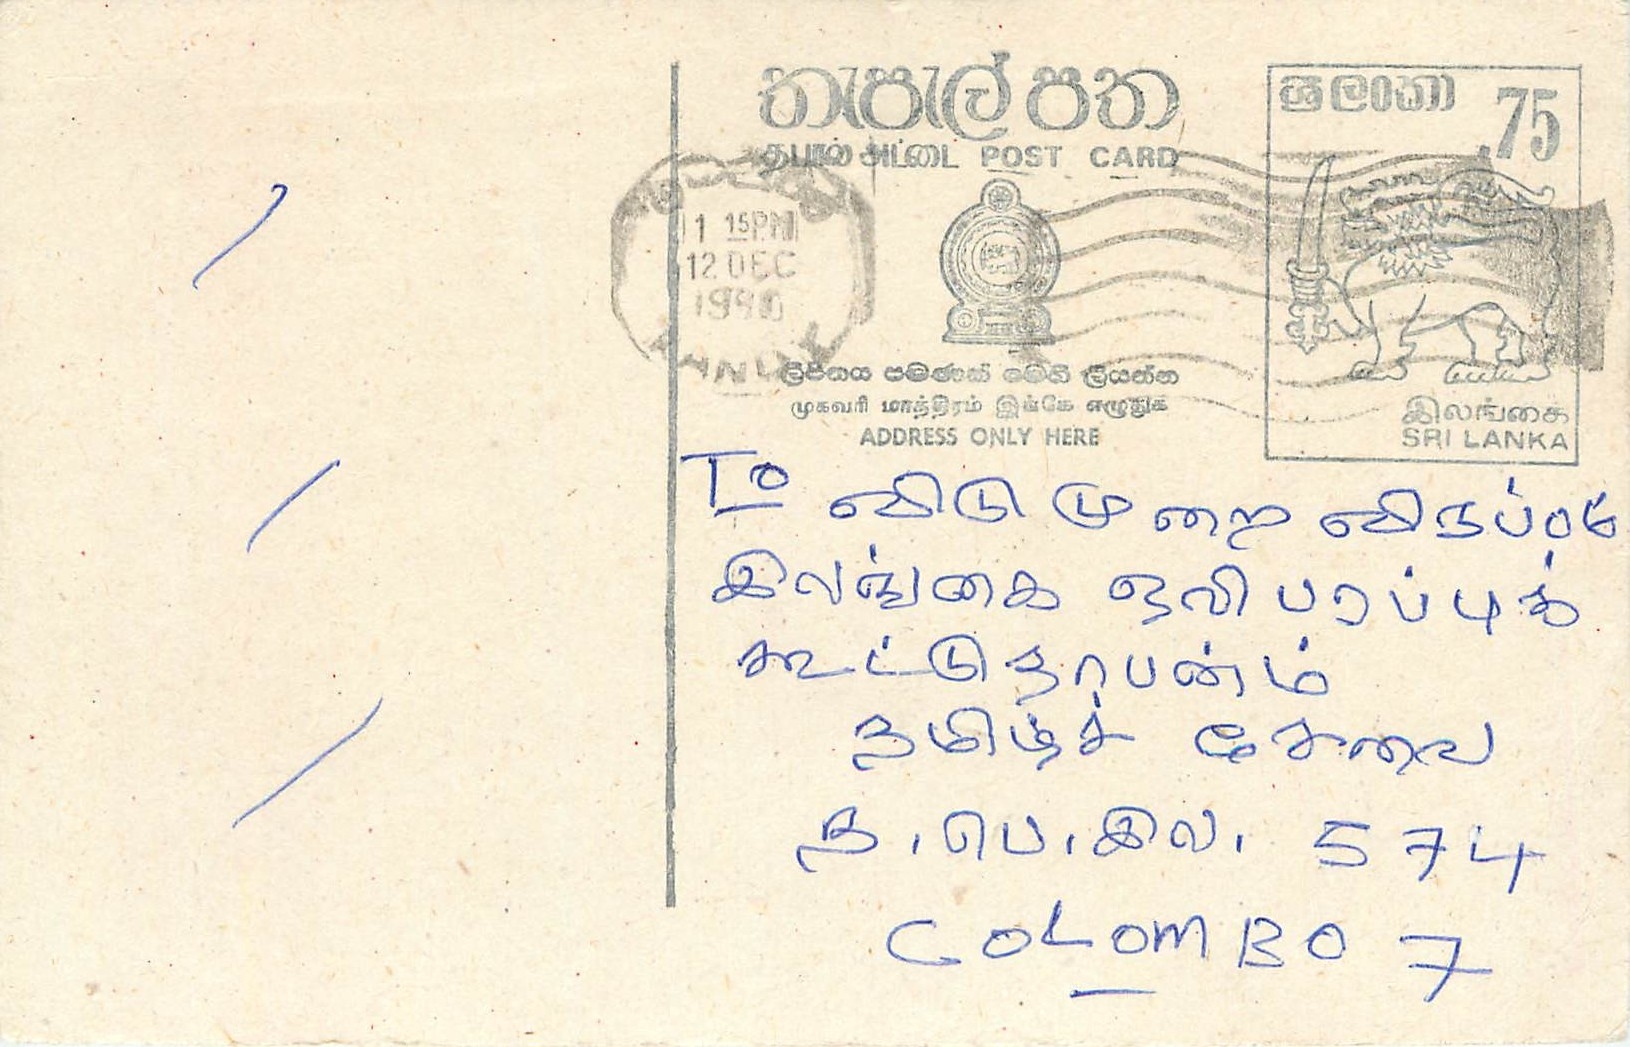 තැපැල් පත
ශ්‍රී ලංකා .75
தபால் அட்டை POST CARD
1 15PM
12 DEC
1990
ලිපිනය පමණක් මෙහි ලියන්න
முகவரி மாத்திரம் இங்கே எழுதுக
ADDRESS ONLY HERE
இலங்கை
SRI LANKA
To விடுமுறை விருப்பம்
இலங்கை ஒலிபரப்புக்
கூட்டுதாபன்ம்
தமிழ்ச் சேவை
த.பெ.இல. 574
COLOMBO 7